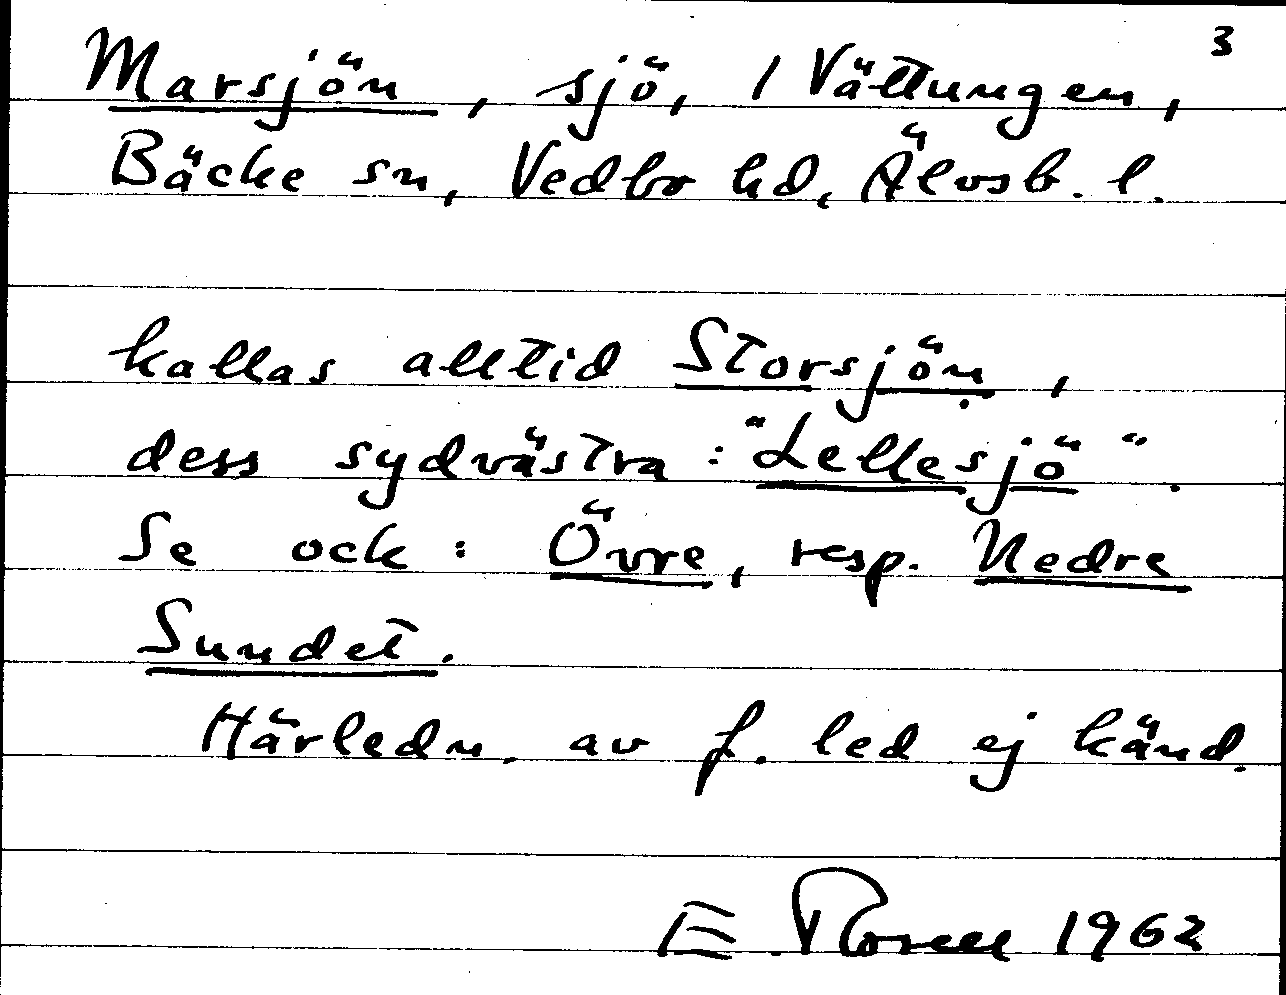 3
Marsjön, sjö, / Vättungen,
Bäcke sn, Vedbo hd, Älvsb. l.
kallas alltid Storsjön,
dess sydvästra: "Lellesjö".
Se ock: Övre, resp. Nedre
Sundet.
Härledn. av f. led ej känd.
E. 1962